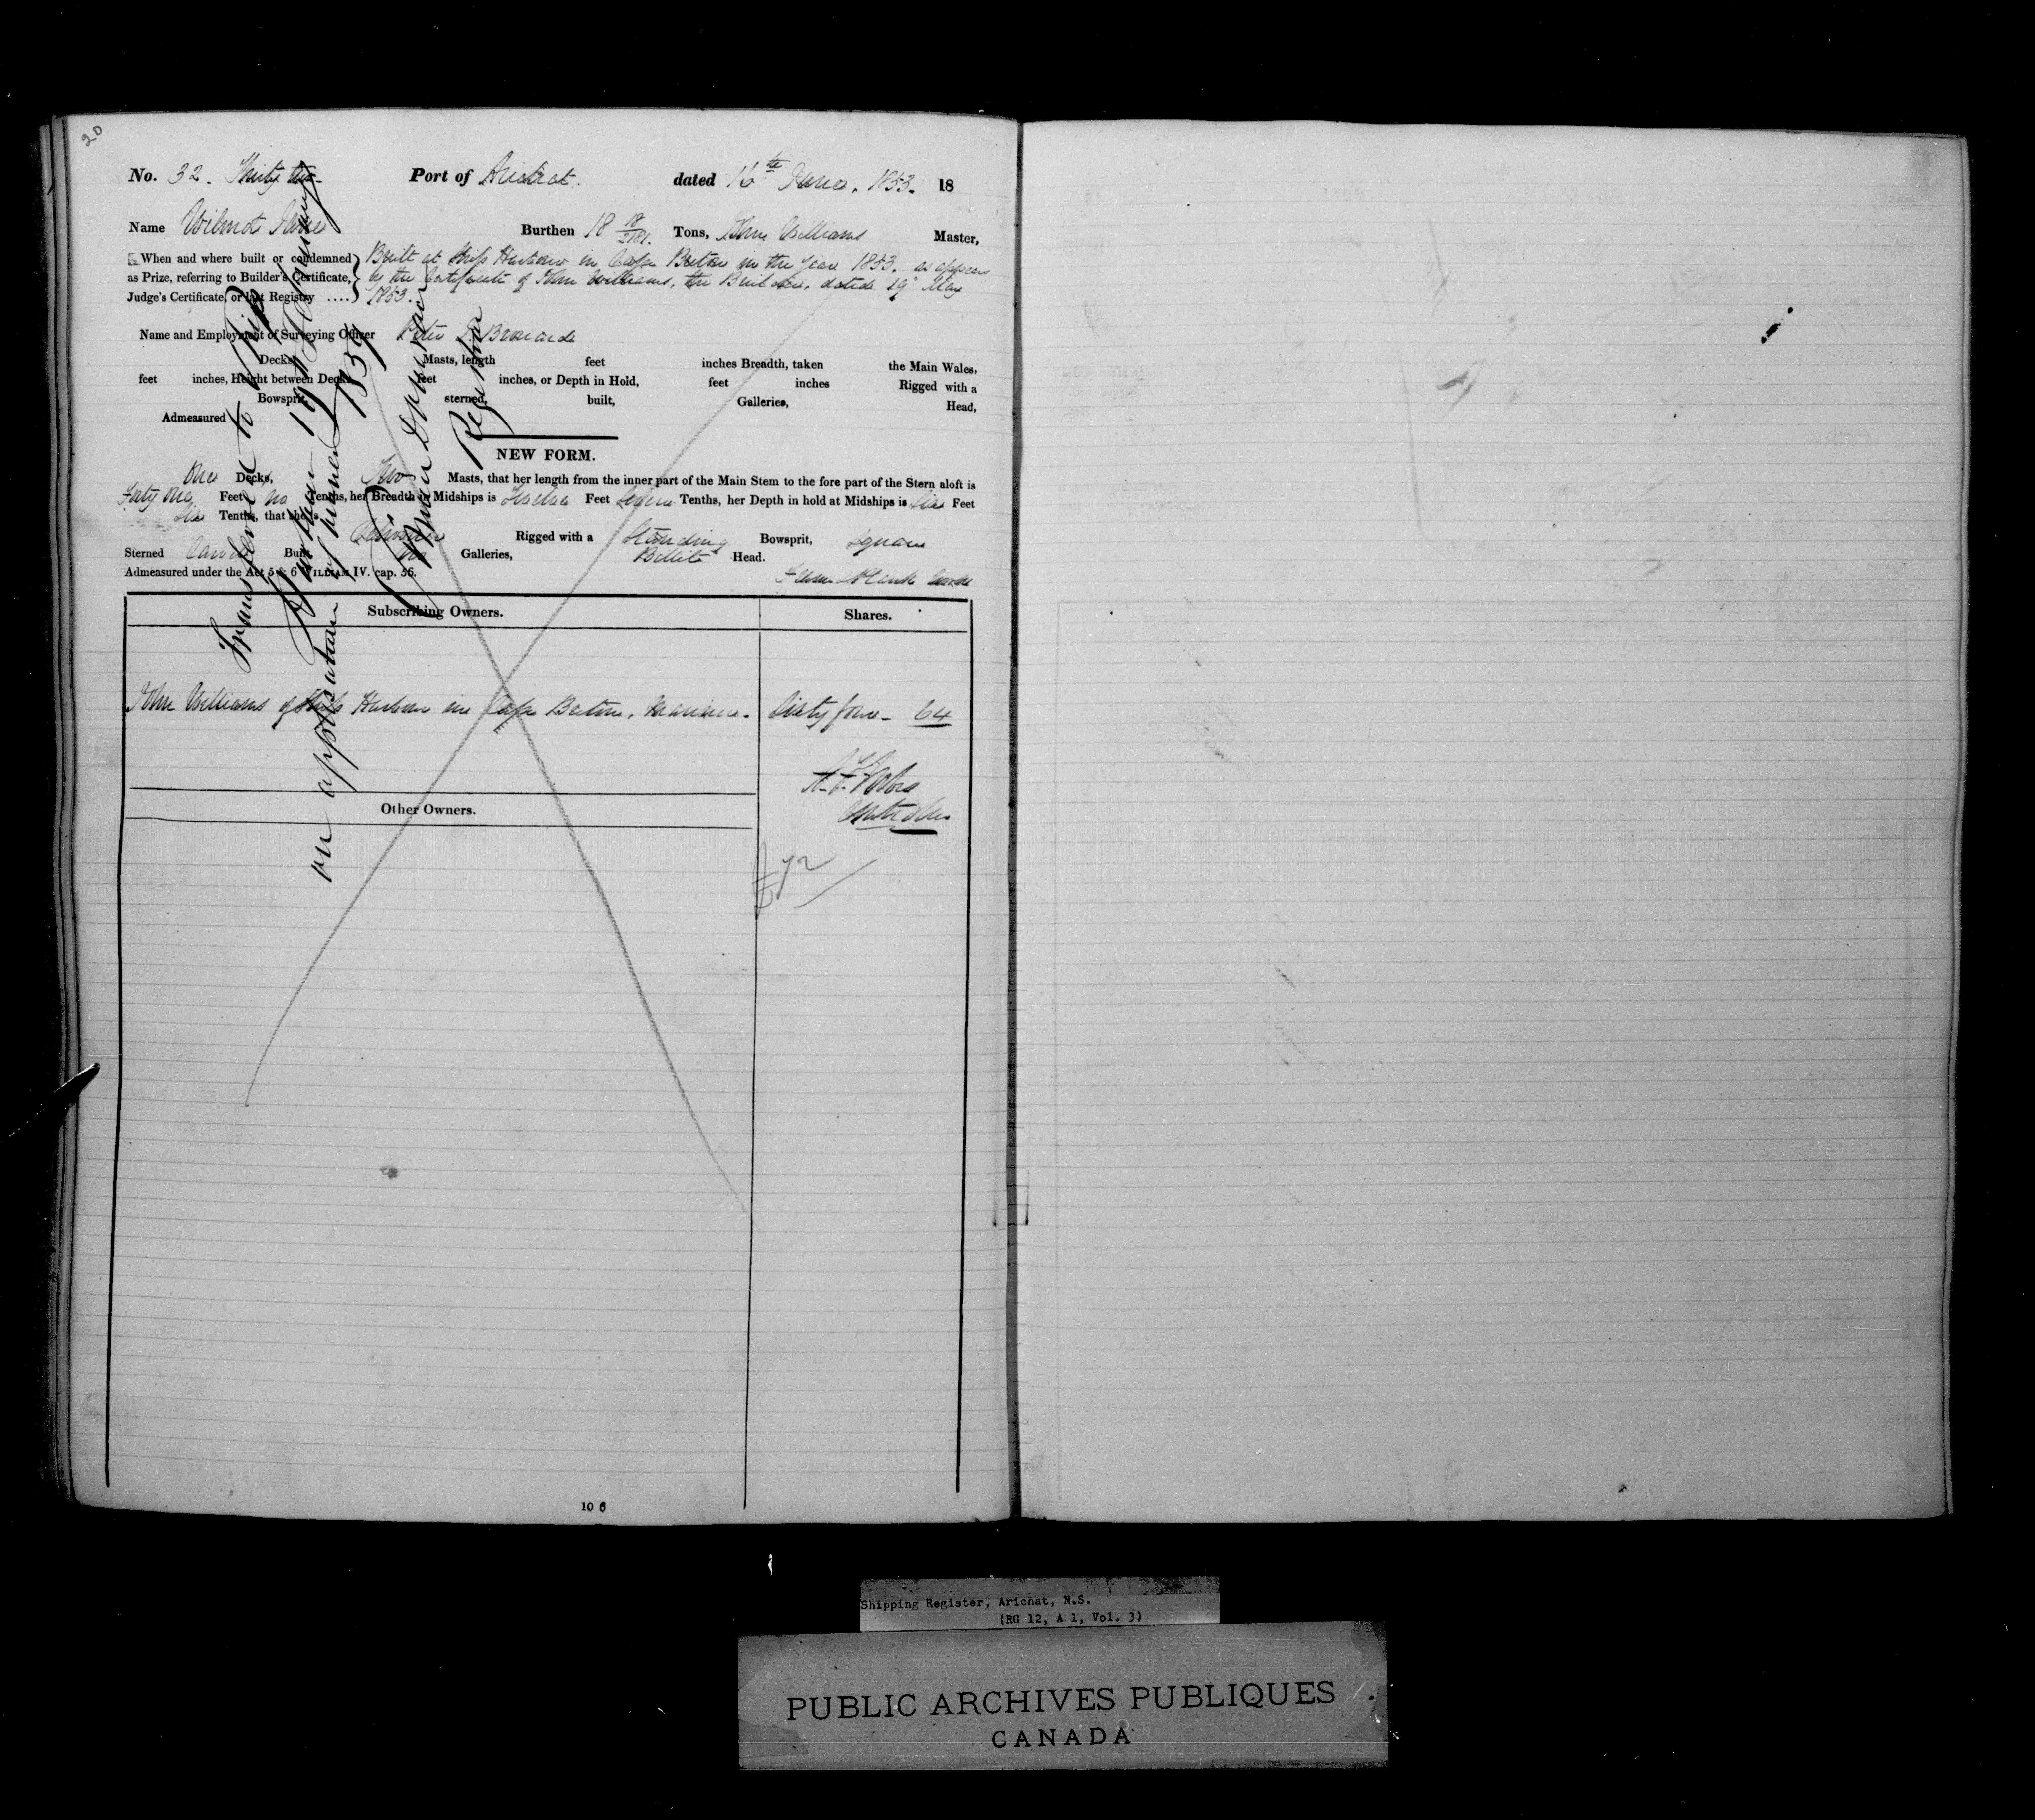 20
No. 32. Thirty two - Port of Arichat. dated 16th June. 1853. 18
Name Wilmot Burthen 18 Tons, John Williams Master,
When and where built or condemned as Prize, referring to Builder's Certificate, Judge's Certificate, or last Registry ....
Built at Ship Harbour in Cape Breton in the Year 1853. as appears
by the Certificate of John Williams, the Builder, dated 19th May
1853.
Name and Employment of Surveying Officer Peter
Decks, Masts, length feet inches Breadth, taken the Main Wales,
feet inches, Height between Decks feet inches, or Depth in Hold, feet inches Rigged with a
Bowsprit, sterned, built, Galleries, Head,
Admeasured
NEW FORM.
One Decks, Two Masts, that her length from the inner part of the Main Stem to the fore part of the Stern aloft is
Forty One Feet no Tenths, her Breadth in Midships is Twelve Feet Seven Tenths, her Depth in hold at Midships is Six Feet
Six Tenths, that she is
Schooner Rigged with a Standing Bowsprit, Square
Sterned Carvel Built No Galleries, Billet Head.
Admeasured under the Act 5 & 6 WILLIAM IV. cap. 56.
Subscribing Owners. Shares.
John Williams of Ship Harbour in Cape Breton, Mariner. Sixty four - 64
Other Owners.
Transferred to
on application of
1859
Registrar
10 6
Shipping Register, Arichat, N.S.
(RG 12, A 1, Vol. 3)
PUBLIC ARCHIVES PUBLIQUES
CANADA